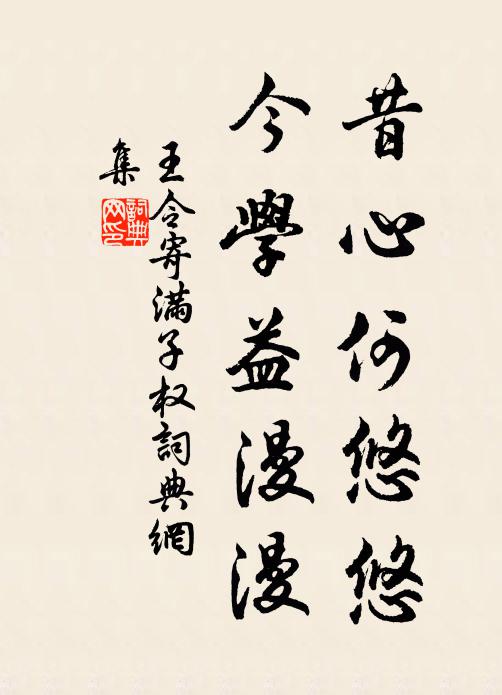 昔心何悠悠
今學益漫漫
王令寄滿子权詞典網
集
詞典網印